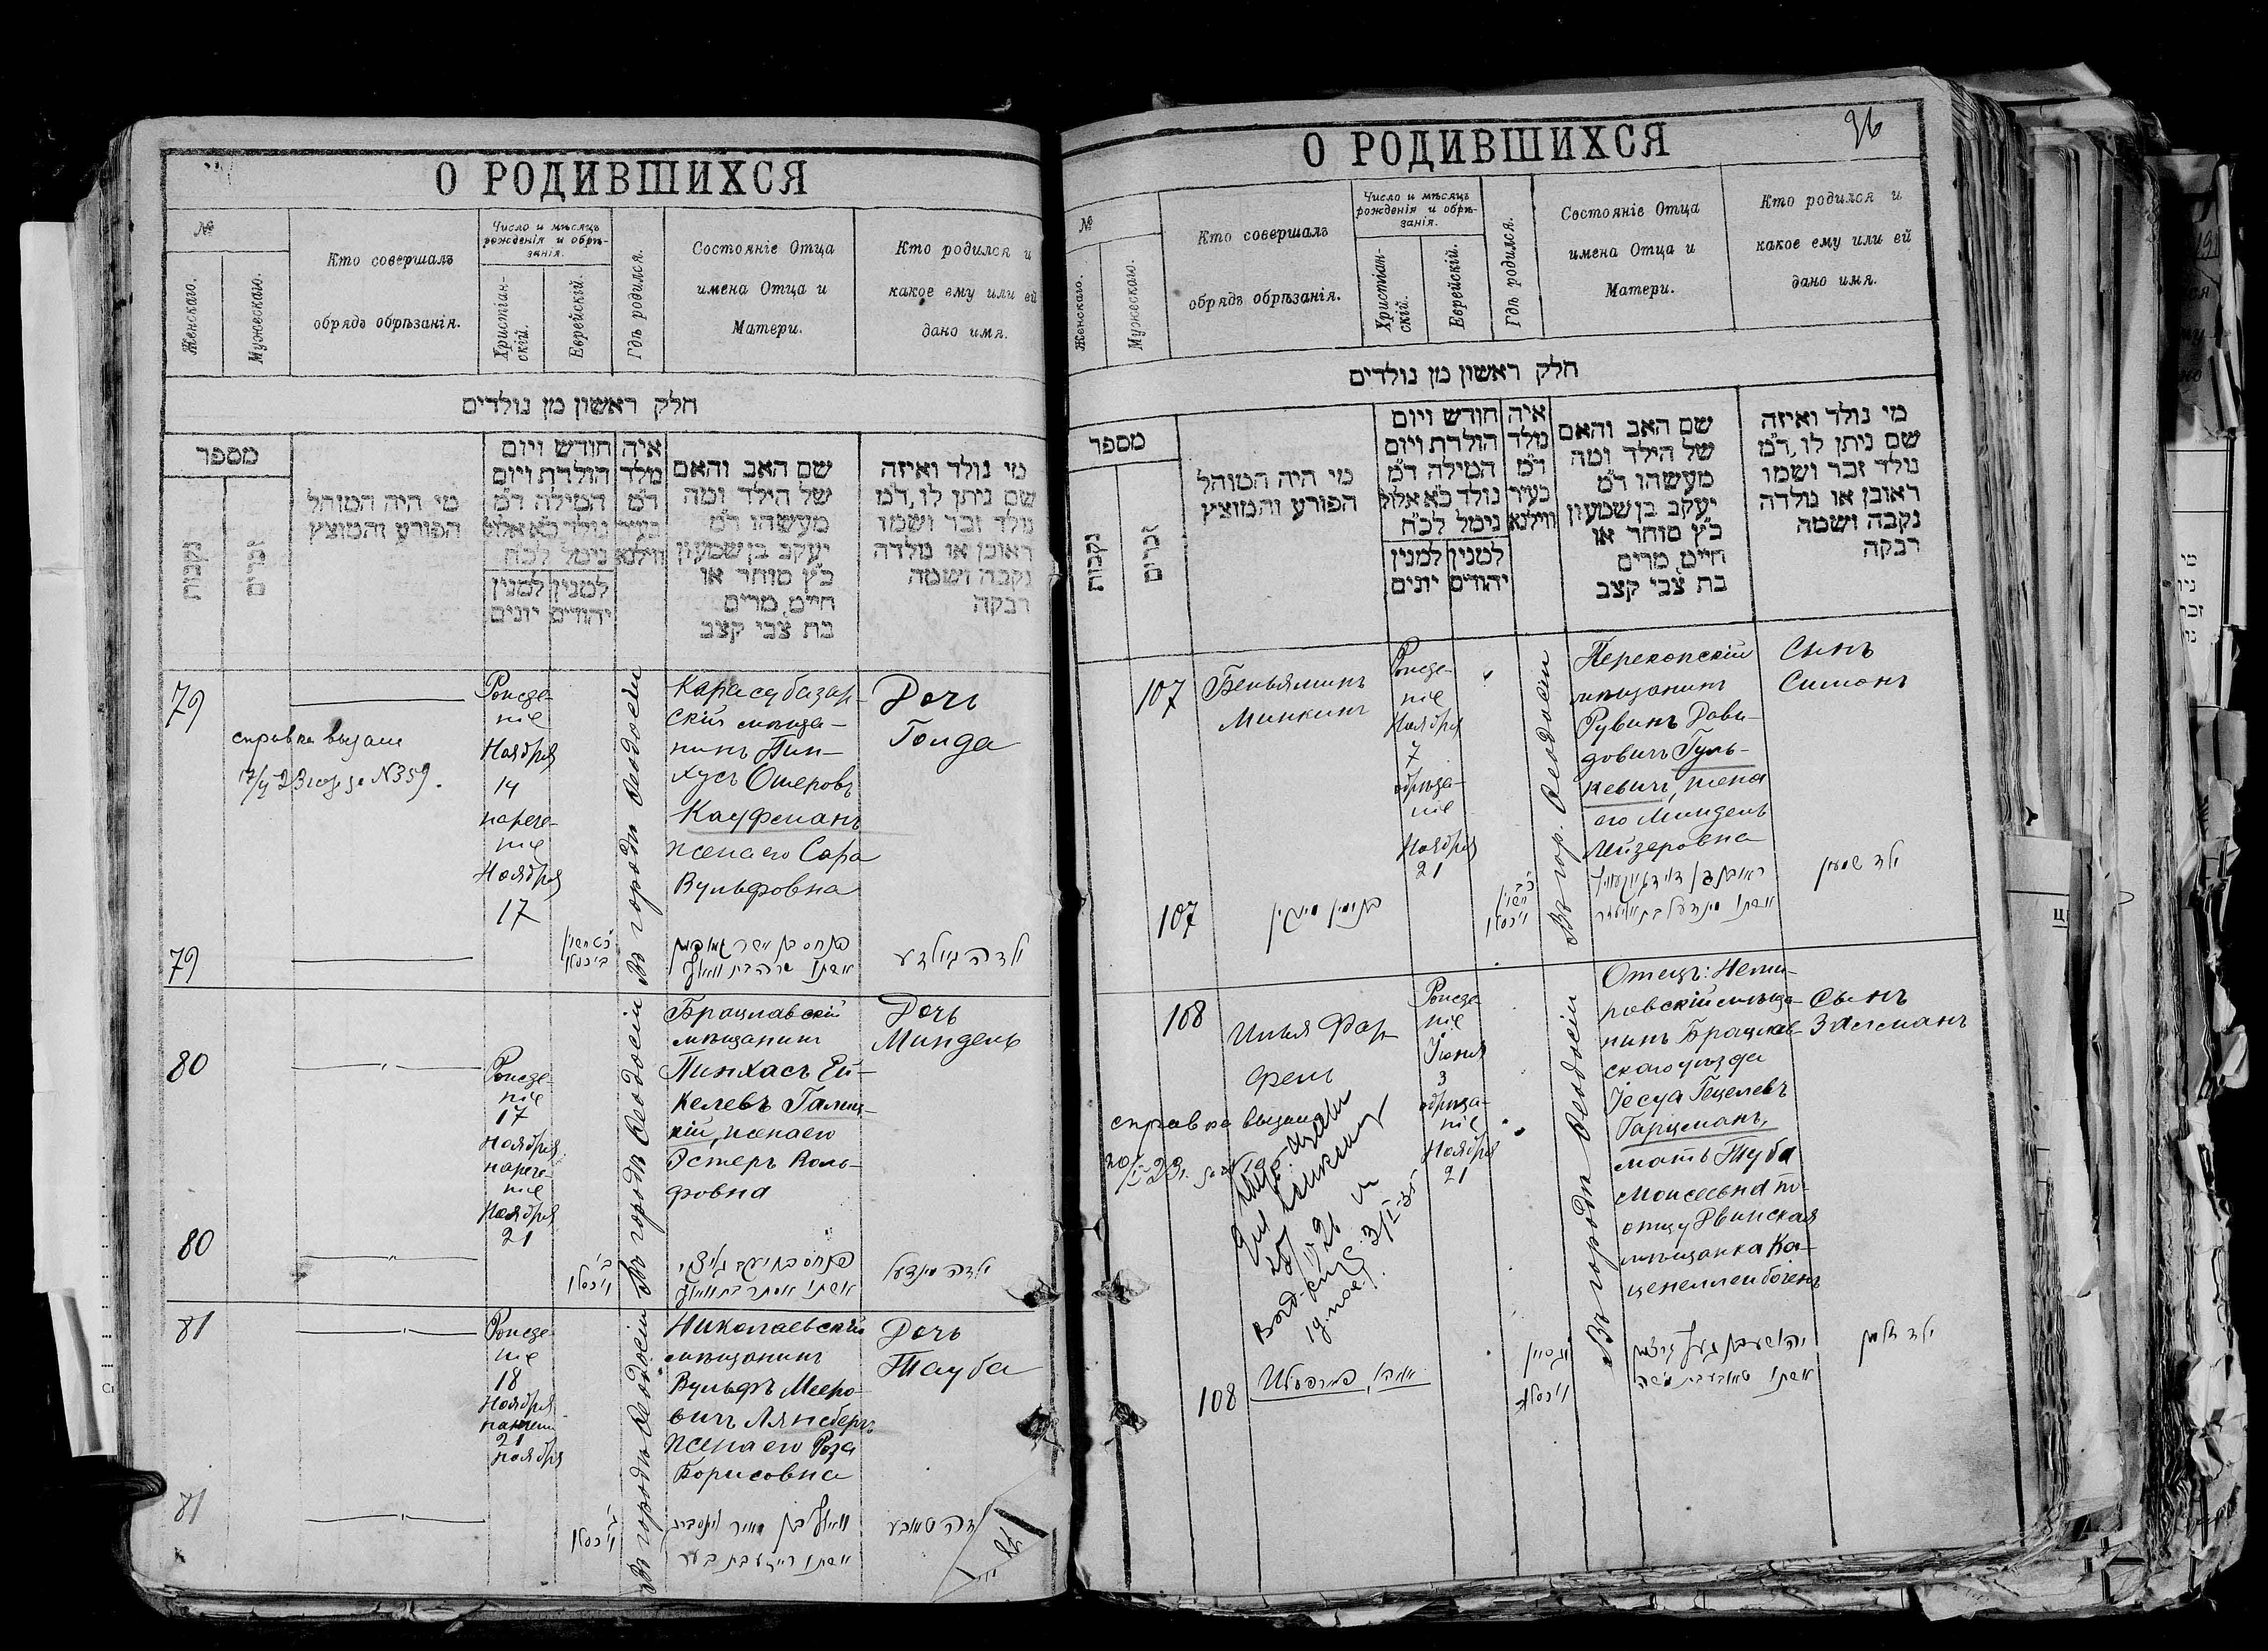 О РОДИВШИХСЯ
№
Женскаго.
Мужескаго.
Кто совершалъ
обрядъ обрѣзанія.
Число и мѣсяцъ
рожденія и обрѣ-
занія.
Христіан-
скій.
Еврейскій.
Гдѣ родился.
Состояніе Отца
имена Отца и
Матери.
Кто родился и
какое ему или ей
дано имя.
חלק ראשון מן נולדים
מספר
נקבות
זכרים
מי היה המוהל
הפורע והמוצץ
חודש ויום
הולדת ויום
המילה ד״מ
נולד כ״א אלול
נימל לכ״ח
למנין למנין
יהודים יונים
איה
מלד
ד״מ
בעיר
ווילנא
שם האב והאם
של הילד ומה
מעשהו ד״מ
יעקב בן שמעון
כ״ץ סוחר או
חיים, מרים
בת צבי קצב
מי נולד ואיזה
שם ניתן לו, ד״מ
נולד זכר ושמו
ראובן או נולדה
נקבה ושמה
רבקה
79
справка выдана
Рожде-
ніе
Ноября
14
нарече-
ніе
Ноября
17
Въ городѣ Ѳеодосіи
Карасубазар-
скій мѣща-
нинъ Пин-
хусъ Ошеровъ
Кауфманъ
жена его Сара
Вульфовна
Дочь
Голда
79
ילדה גאלדע
80
Рожде-
ніе
17
Ноября
нарече-
ніе
Ноября
21
Въ городѣ Ѳеодосіи
Брацлавскій
мѣщанинъ
Пинхасъ Ей-
келевъ Галиц-
кій, жена его
Эстеръ Воль-
фовна
Дочь
Миндель
80
ילדה מינדעל
81
Рожде-
ніе
18
Ноября
21
ноября
Въ городѣ Ѳеодосіи
Николаевскій
мѣщанинъ
Вульфъ Мееро-
вичъ Лянсбергъ
жена его Роза
Борисовна
Дочь
Тауба
81
ילדה טאובע
О РОДИВШИХСЯ
36
№
Женскаго.
Мужескаго.
Кто совершалъ
обрядъ обрѣзанія.
Число и мѣсяцъ
рожденія и обрѣ-
занія.
Христіан-
скій.
Еврейскій.
Гдѣ родился.
Состояніе Отца
имена Отца и
Матери.
Кто родился и
какое ему или ей
дано имя.
חלק ראשון מן נולדים
מספר
נקבות
זכרים
מי היה המוהל
הפורע והמוצץ
חודש ויום
הולדת ויום
המילה ד״מ
נולד כ״א אלול
נימל לכ״ח
למנין למנין
יהודים יונים
איה
מלד
ד״מ
בעיר
ווילנא
שם האב והאם
של הילד ומה
מעשהו ד״מ
יעקב בן שמעון
כ״ץ סוחר או
חיים, מרים
בת צבי קצב
מי נולד ואיזה
שם ניתן לו, ד״מ
נולד זכר ושמו
ראובן או נולדה
נקבה ושמה
רבקה
107
Беньяминъ
Минкинъ
Рожде-
ніе
Ноября
7
обрѣза-
ніе
Ноября
21
Въ гор. Ѳеодосіи
Перекопскій
мѣщанинъ
Рувинъ Дави-
довичъ Гуль-
кевичъ, жена
его Миндель
Лейзеровна
Сынъ
Симонъ
107
בנימין מינקין
ילד שמעון
108
Илья Фар-
фель
справка выдана
Рожде-
ніе
Іюня
3
обрѣза-
ніе
Ноября
21
Въ городѣ Ѳеодосіи
Отецъ: Неми-
ровскій мѣща-
нинъ Брацлав-
скаго уѣзда
Іесуа Гецелевъ
Гарцманъ,
мать Туба
Моисеевна по
отцу Двинская
мѣщанка Ка-
ценеленбогенъ
Сынъ
Залманъ
108
ילד זלמן